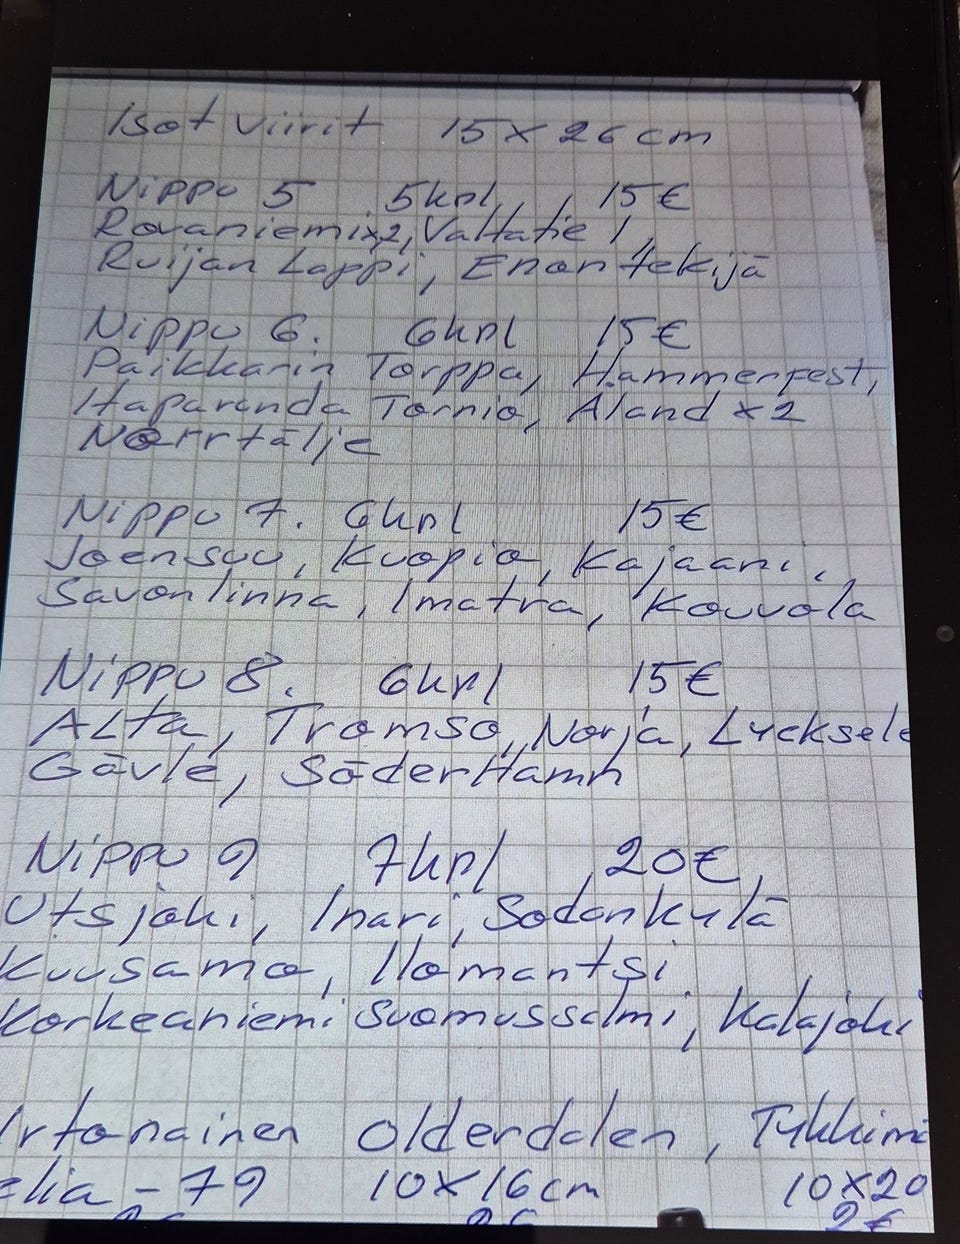 Isot viirit 15 x 26 cm
Nippu 5 5kpl 15 €
Rovaniemi x2, Valtatie 1,
Ruijan Lappi, Enontekijä
Nippu 6. 6kpl 15 €
Paikkarin Torppa, Hammerfest,
Haparanda Tornio, Åland x 2
Norrtälje
Nippu 7. 6kpl 15 €
Joensuu, Kuopio, Kajaani,
Savonlinna, Imatra, Kouvola
Nippu 8. 6kpl 15 €
Alta, Tromso, Norja, Lycksele
Gävle, SöderHamn
Nippu 9 7kpl 20 €
Utsjoki, Inari, Sodankylä
Kuusamo, Ilomantsi
Korkeaniemi Suomussalmi, Kalajoki
Irtonainen Olderdalen, Tykkimä
elia - 79 10x16 cm 10x20
2€ 2€